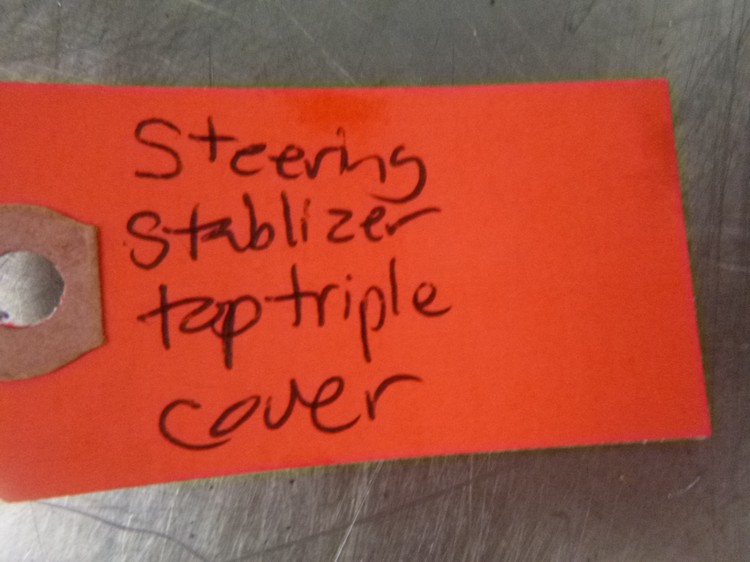 Steering
stablizer
top triple
cover